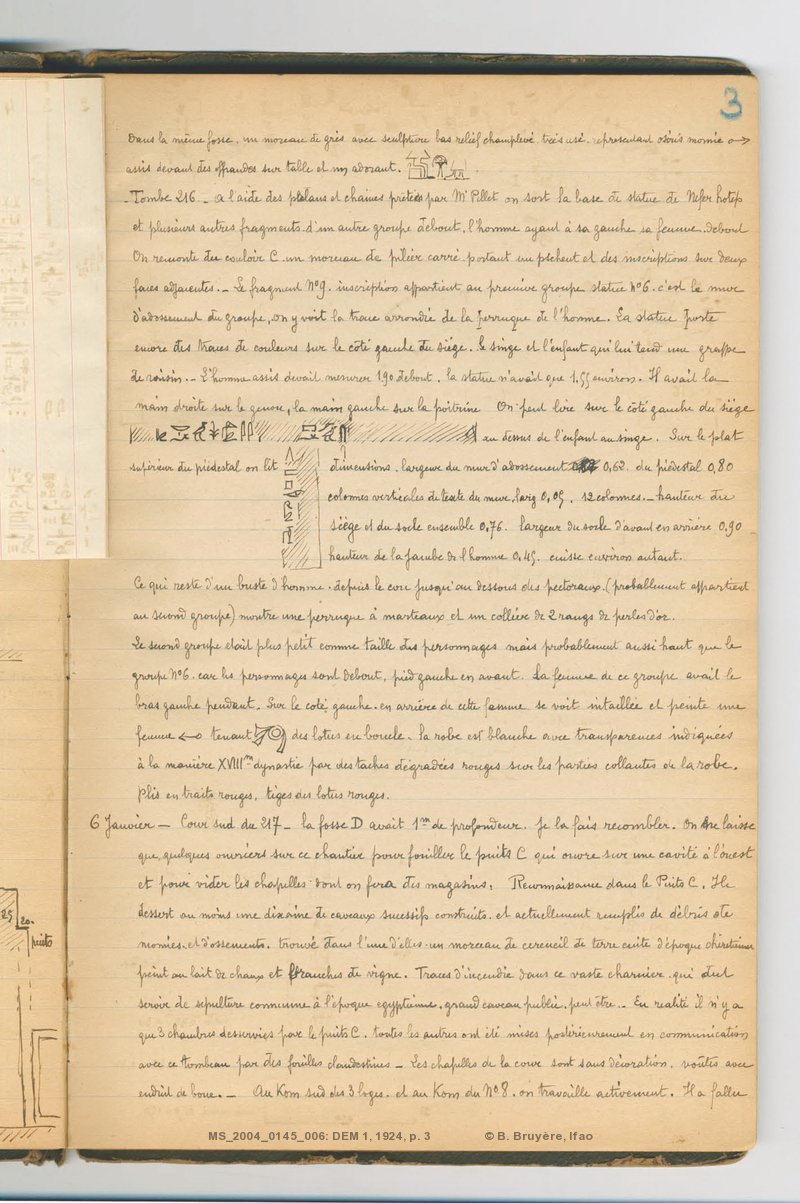 3
Dans la même fosse, un morceau de grès avec sculpture bas relief champlevé, très usé, représentant osiris momie
assis devant des offrandes sur table et un adorant.
- Tombe 216 - a l'aide des palans et chaines prêtés par Mr Pillet on sort la base de statue de Nefer hotep
et plusieurs autres fragments d'un autre groupe debout, l'homme ayant à sa gauche sa femme debout
On remonte du couloir C un morceau de pilier carré portant un pschent et des inscriptions sur deux
faces adjacentes. - Le fragment N°9 inscription appartient au premier groupe statue N°6. c'est le mur
d'adossement du groupe, on y voit la trace arrondie de la perruque de l'homme. La statue porte
encore des traces de couleurs sur le côté gauche du siège. le singe et l'enfant qui lui tend une grappe
de raisin. - L'homme assis devait mesurer 1.90 debout. la statue n'avait que 1.55 environ. Il avait la
main droite sur le genou, la main gauche sur la poitrine. On peut lire sur le côté gauche du siège
au dessus de l'enfant au singe. Sur le plat
supérieur du piédestal on lit
dimensions. largeur du mur d'adossement 0,68. du piédestal 0,80
colonnes verticales de texte du mur, larg 0,05. 12 colonnes. - hauteur du
siège et du socle ensemble 0,76. largeur du socle d'avant en arrière 0,90
hauteur de la jambe de l'homme 0,45. cuisse environ autant.
Ce qui reste d'un buste d'homme. depuis le cou jusqu'au dessous des pectoraux. (probablement appartient
au second groupe) montre une perruque à marteaux et un collier de 2 rangs de perles d'or.
Le second groupe était plus petit comme taille des personnages mais probablement aussi haut que le
groupe N°6. car les personnages sont debout, pied gauche en avant. La femme de ce groupe avait le
bras gauche pendant. Sur le coté gauche. en arrière de cette femme se voit intaillée et peinte une
femme tenant des lotus en boucle. la robe est blanche avec transparences indiquées
à la manière XVIIIme dynastie par des taches dégradées rouges sur les parties collantes de la robe.
Plis en traits rouges, tiges des lotus rouges.
6 Janvier - Cour sud du 217 - la fosse D avait 1m de profondeur. Je la fais recombler. On ne laisse
que quelques ouvriers sur ce chantier pour fouiller le puits C qui ouvre sur une cavité à l'ouest
et pour vider les chapelles dont on fera des magasins. Reconnaissance dans le Puits C. Il
dessert au moins une dizaine de caveaux sucessifs construits. et actuellement remplis de débris de
momies et d'ossements. trouvé dans l'une d'elles un morceau de cercueil de terre cuite d'époque chrétienne
peint au lait de chaux et branches de vigne. Traces d'incendie dans ce vaste charnier qui dut
servir de sépulture commune à l'époque egyptienne. grand caveau public peut être. - En realité il n'y a
que 3 chambres desservies par le puits C. toutes les autres ont été mises postérieurement en communication
avec ce tombeau par des fouilles clandestines - Les chapelles de la cour sont sans décoration, voûtes avec
enduit de boue. - Au Kom sud des 3 loges. et au Kom du N°8. on travaille activement. Il a fallu
25
20.
puits
MS_2004_0145_006: DEM 1, 1924, p. 3 © B. Bruyère, Ifao